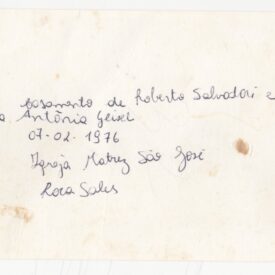 casamento de Roberto Salvadori e
Antônia
07-02-1976
Igreja Matriz São José
Roca Sales